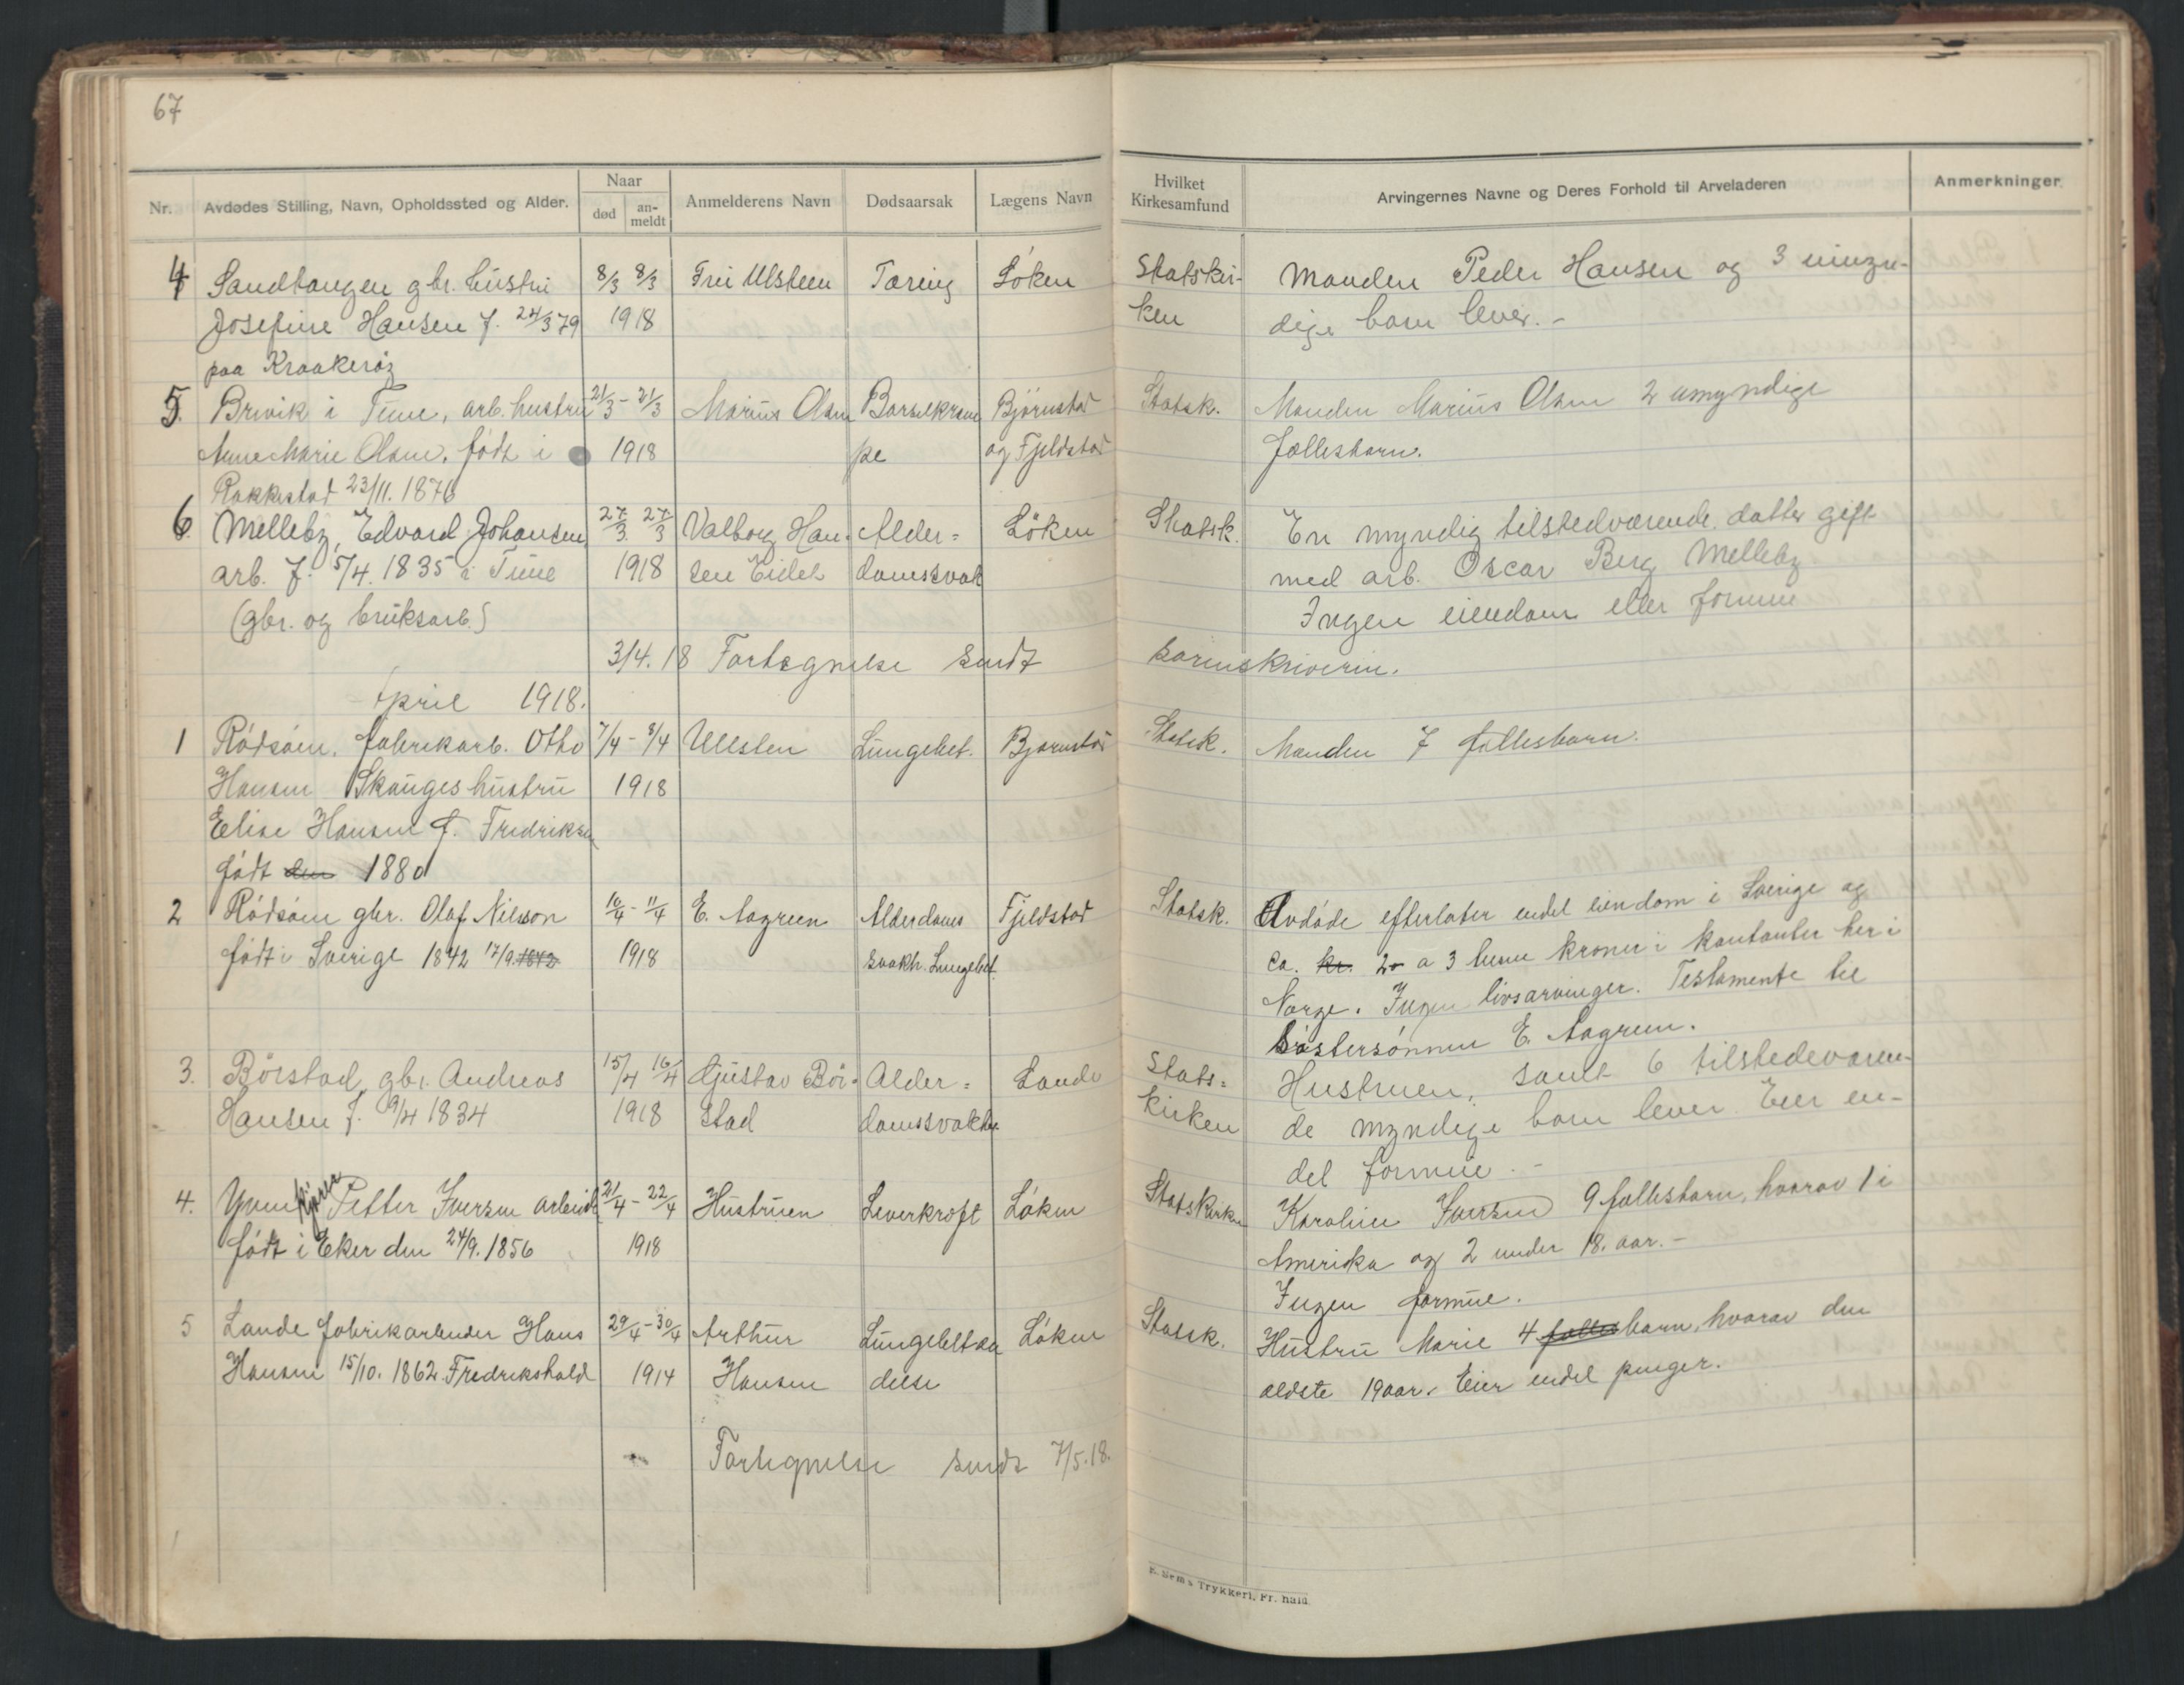 67
Nr.
Avdødes Stilling, Navn, Opholdssted og Alder.
Naar
død
an-
meldt
Anmelderens Navn
Dødsaarsak
Lægens Navn
Hvilket
Kirkesamfund
Arvingernes Navne og Deres Forhold til Arveladeren
Anmerkninger
4 Sandtangen gbr. hustru 8/3 8/3 Fru Ulsteen Tæring Löken Statskir- Manden Peder Hansen og 3 umyn-
Josefine Hansen f. 24/3 79 1918 ken dige barn lever. -
paa Kraakeröy
5. Brevik i Tune, arb. hustru 21/3 - 21/3 Marius Olsen Barselkram Björnstad Statsk. Manden Marius Olsen 2 umyndige
Anne Marie Olsen. född i 1918 pe og Fjeldstad fællesbarn.
Rakkestad 23/11. 1876
6. Melleby, Edvard Johansen 27/3. 27/3 Valborg Han- Alder= Löken Statsk. En myndig tilstedværende datter gift
arb. f. 5/4. 1835 i Tune 1918 sen Eidet domssvak med arb. Oscar Berg Melleby
(gbr. og bruksarb.) Ingen eiendom eller formue
3/4. 18 Fortegnelse sendt sorenskriveren.
April 1918.
1 Rödsöen, fabrikarb. Otto 7/4 - 8/4 Ullsten Lungebet. Bjørnstad Statsk. Manden 7 fællesbarn.
Hansen Skauges hustru 1918
Elise Hansen f. Fredriksen
född den 1880
2 Rödsöen gbr. Olaf Nilsson 10/4 - 11/4 E. Aagreen Alderdoms Fjeldstad Statsk. Avdöde efterlater endel eiendom i Sverige og
född i Sverige 1842 17/9. 1842 1918 svakh. Lungebet. ca. kr. 2 a 3 tusen kroner i kontanter her i
Norge. Ingen livsarvinger. Testamente til
Söstersönnen E. Aagreen.
3. Börstad, gbr. Andreas 15/4 16/4 Gjustav Bör- Alder= Lande Stats= Hustruen, samt 6 tilstedeværen-
Hansen f. 9/4 1834 1918 stad domssvakhe. kirken de myndige barn lever. Eier en-
del formue. -
4. Petter Iversen arbeider 21/4 - 22/4 Hustruen Leverkræft Löken Statskirken Karoline Iversen 9 fællesbarn, hvorav 1 i
född i Eker den 24/9. 1856 1918 Amerika og 2 under 18. aar. -
Ingen formue.
5 Lande fabrikarbeider Hans 29/4 - 30/4 Arthur Lungebetæn Löken Statsk. Hustru Marie 4 fælles barn, hvorav den
Hansen 15/10. 1862. Fredrikshald 1914 Hansen delse ældste 19 aar. Eier endel penger.
Fortegnelse sendt 7/5. 18.
Trykkeri, Fr. hald.